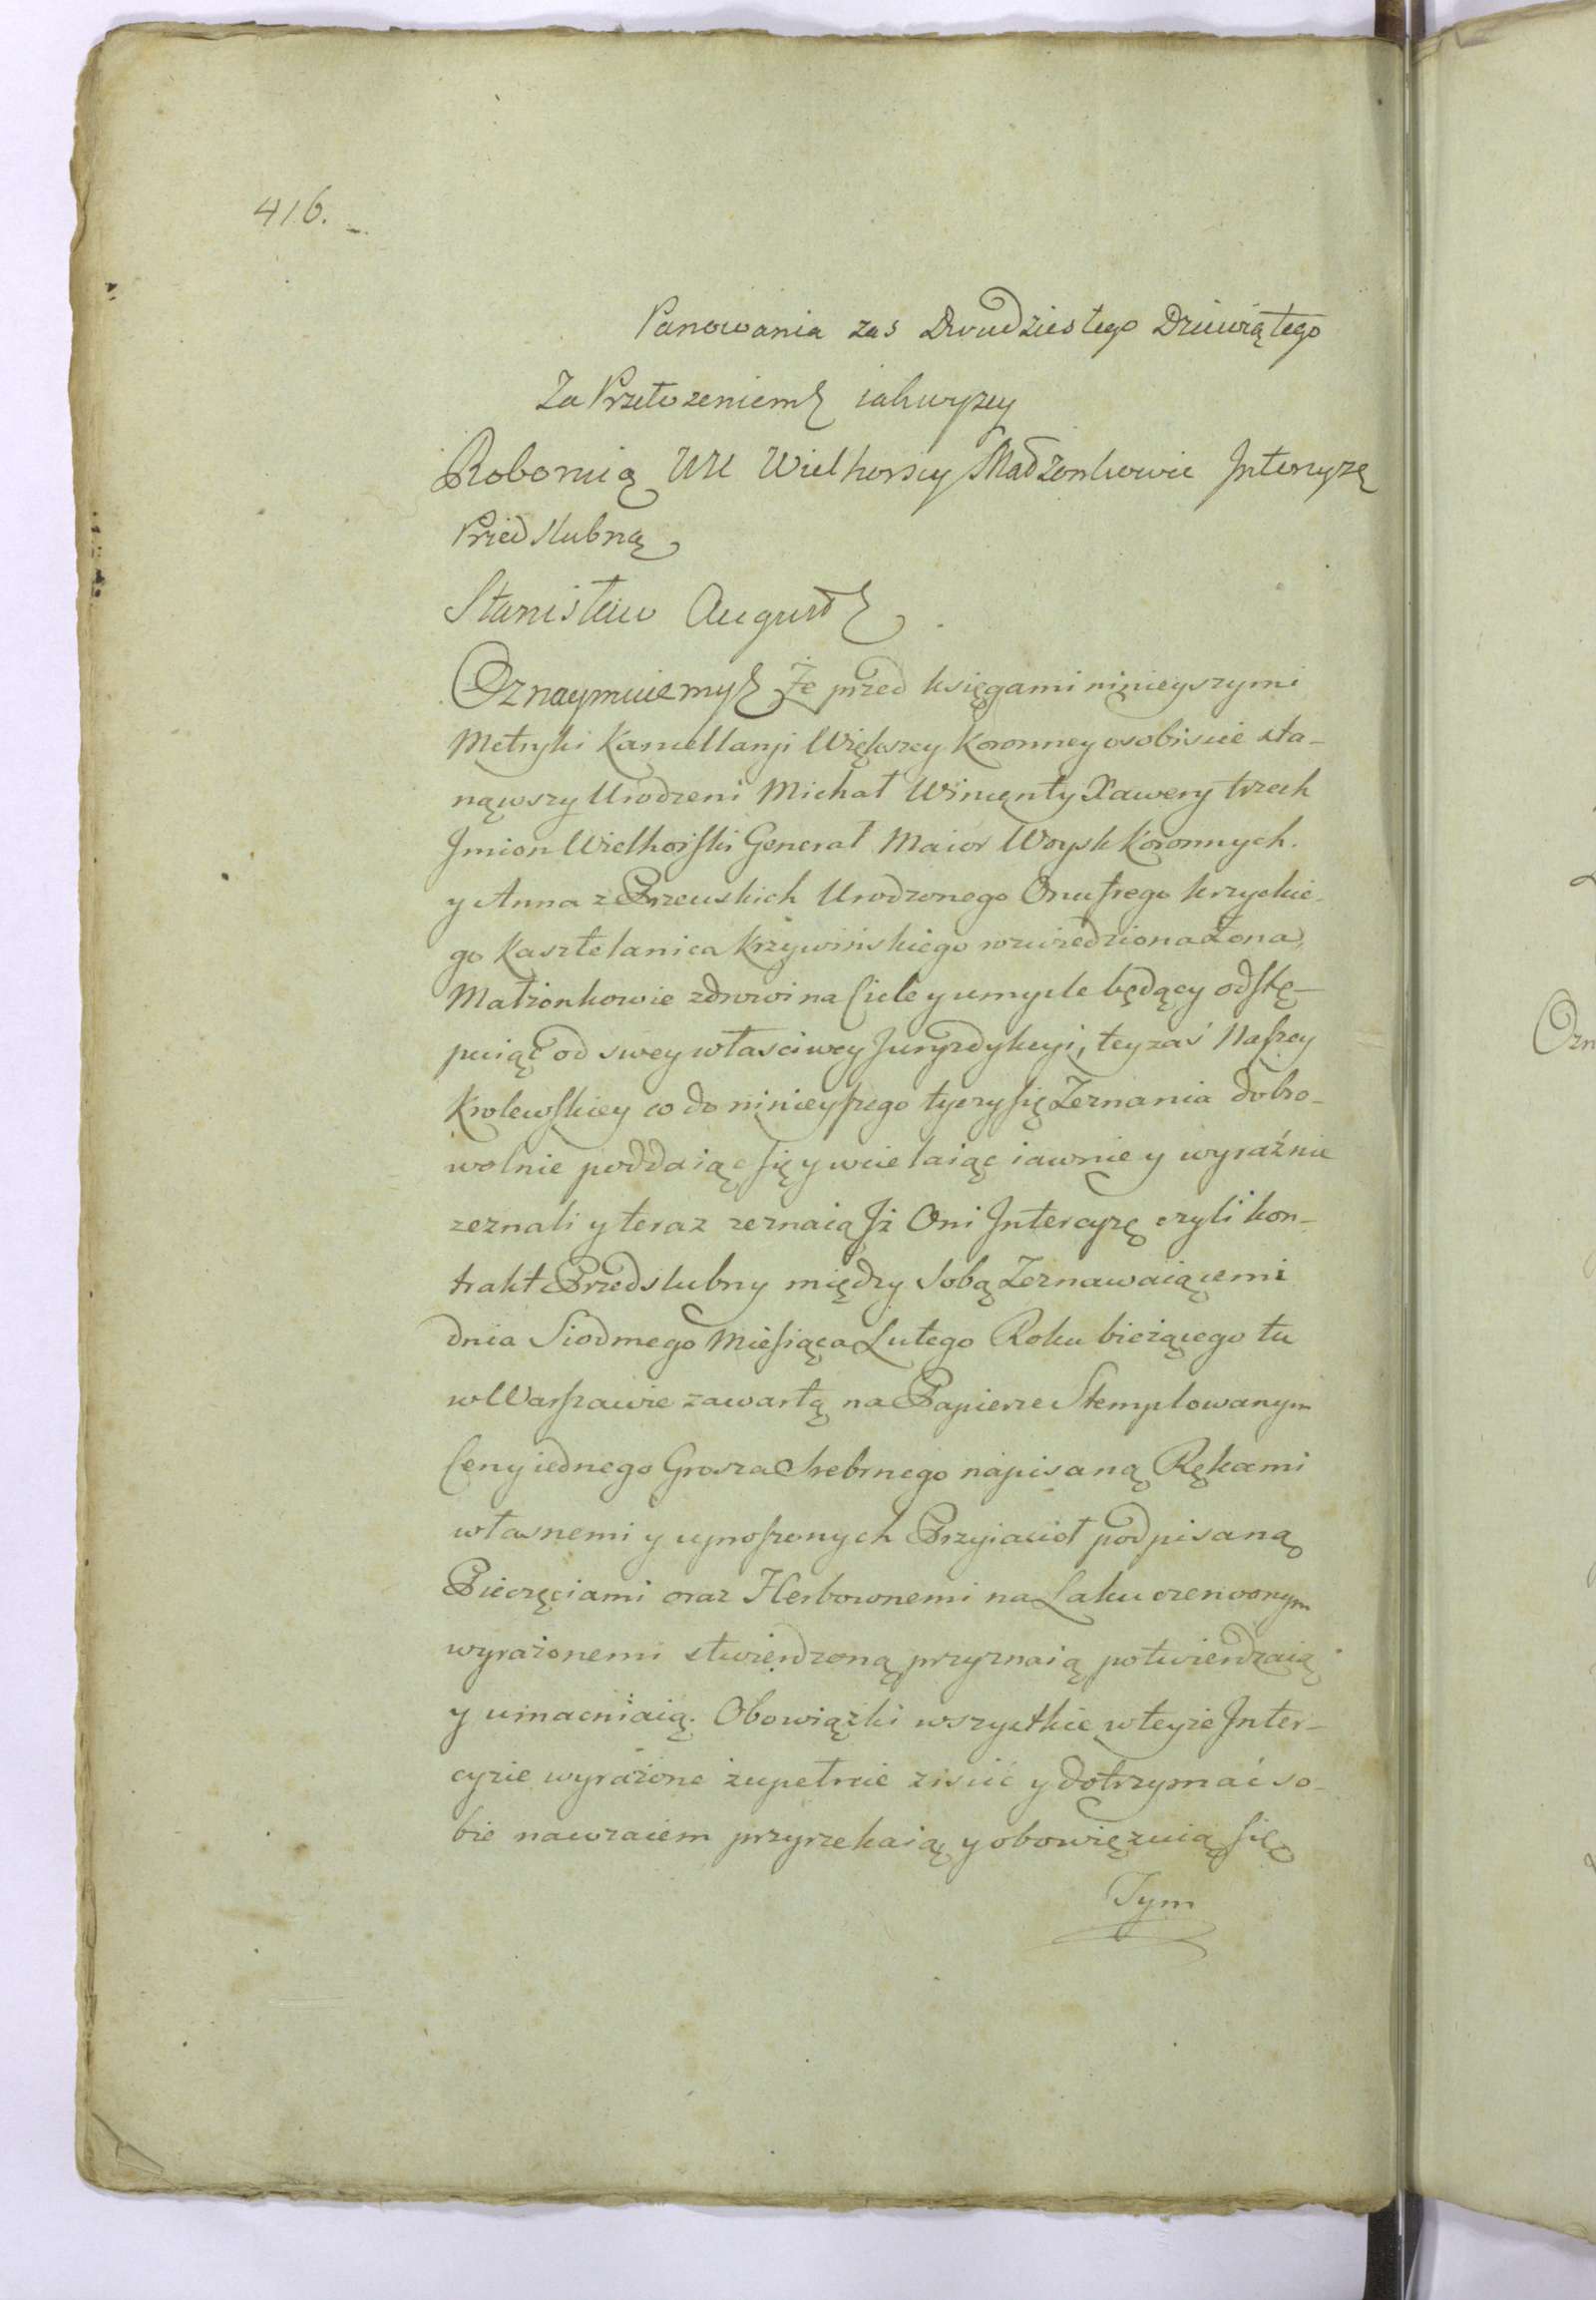 416.
Panowania zas Dwudziestego Dziewiątego
Za Przełozeniem iakwyzey
Roboruią UU Wielhorscy Madzonkowie Intercyzę
Przedslubną
Stanisław August
Oznaymuiemy Że przed księgami ninieyszymi
Metryki Kancellaryi Większey Koronney osobiscie sta-
nąwszy Urodzeni Michał Wincenty Xawery trzech
Jmion Wielhorski Generał Maior Woysk Koronnych.
y Anna z Rzewuskich Urodzonego Onufrego krzyckie-
go Kasztelanica Krzywińskiego rozwiedziona Żona,
Małżonkowie zdrowi na Ciele y umysle będący odstę-
puiąc od swey własciwey Juryzdykcyi, tey zaś Naszey
Krolewskiey co do ninieyszego tyczy się Zeznania dobro-
wolnie poddaiąc się y wcielaiąc iawnie y wyraźnie
zeznali y teraz zeznaią Jż Oni Intercyzę czyli kon-
trakt Przedslubny między sobą Zeznawaiącemi
dnia Siodmego Miesiąca Lutego Roku bieżącego tu
w Warszawie zawartą na Papierze Stemplowanym
Ceny iednego Grosza Srebrnego napisaną Rękami
własnemi y uproszonych Przyiacioł podpisaną
Pieczęciami oraz Herbownemi na Laku czerwonym
wyrażonemi stwierdzoną przyznaią potwierdzaią
y umacniaią. Obowiązki wszystkie w teyże Inter-
cyzie wyrażone zupełnie ziscić y dotrzymać so-
bie nawzaiem przyrzekaią y obowięzuią się
Tym
Ozn